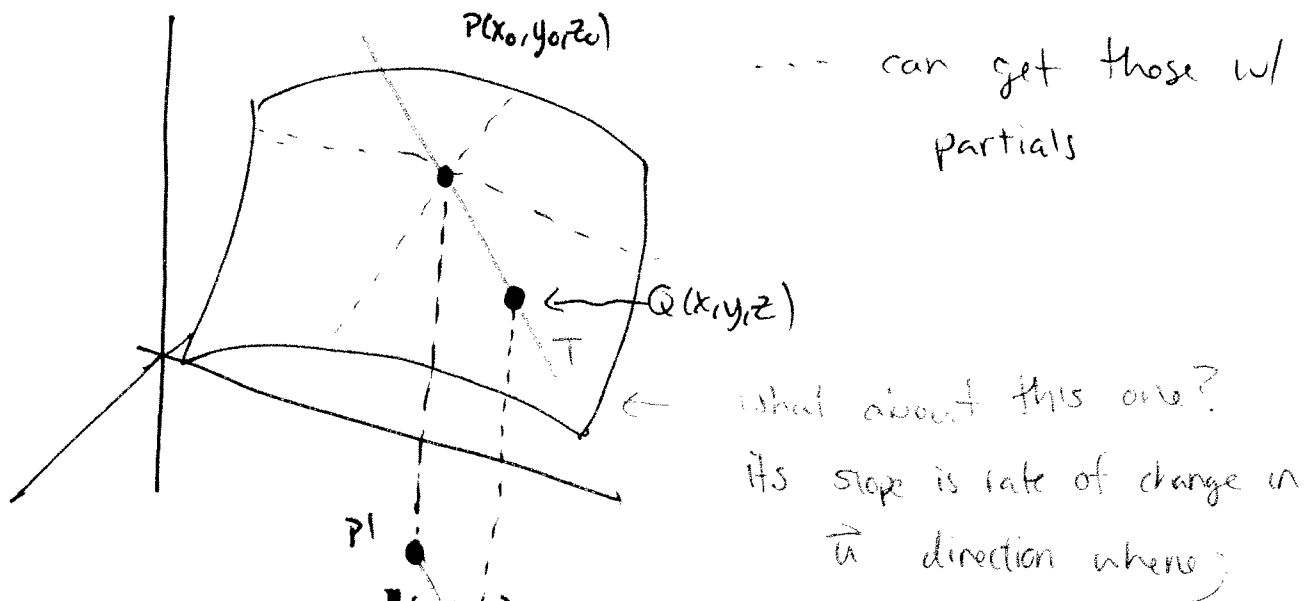 P(x₀,y₀,z₀)
--- can get those w/
partials
Q(x,y,z)
T
← what about this one?
its slope is rate of change in
u⃗ direction where
P'